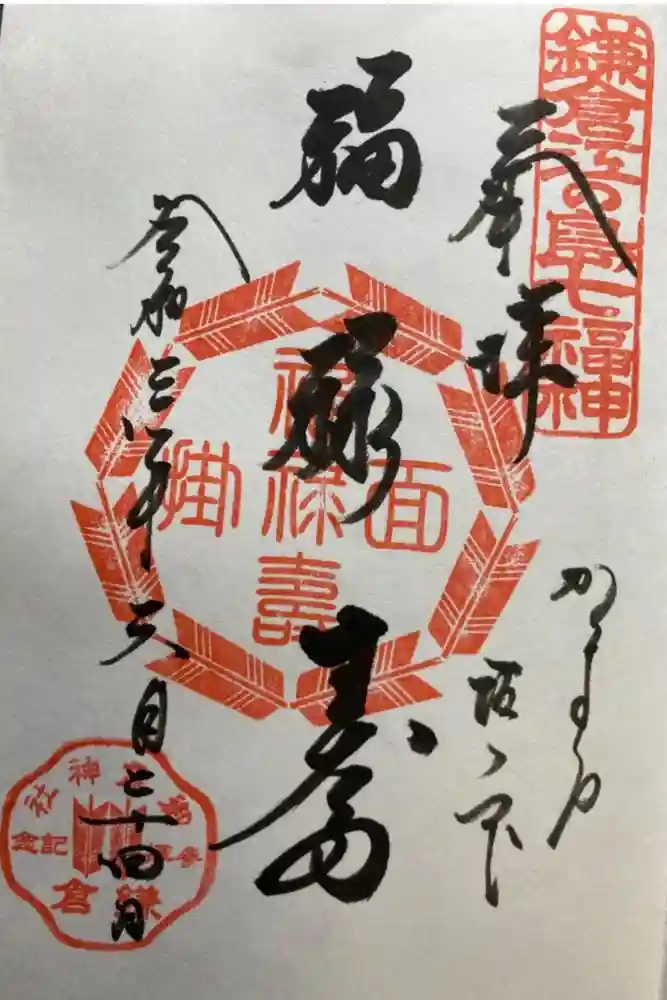 鎌倉江の島七福神
奉拝
かまくら
坂ノ下
福禄寿
福禄壽
面掛
令和三年六月二十四日
神社
参拝記念
鎌倉